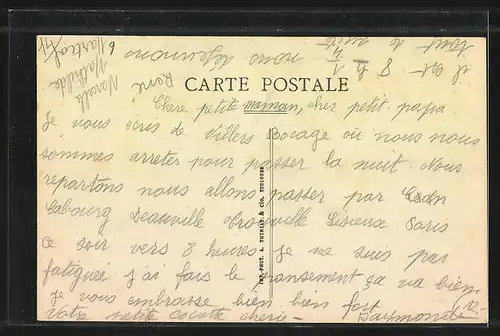 CARTE POSTALE
Chere petite maman, cher petit papa
Je vous écris de Villers Bocage où nous nous
sommes arreter pour passer la nuit. Nous
repartons nous allons passer par Caen
Cabourg Deauville Trouville Lisieux Paris
ce soir vers 8 heures Je ne suis pas
fatiguée j'ai fais le pansement ça va bien
Je vous embrasse bien bien fort
Votre petite cocotte cherie - Raymonde
Marcelle
Mathilde
René
il est 8 h 1/4 nous déjeunons
tout de suite
IMP.-PHOT. A. THIRIET & Cie. TOULOUSE